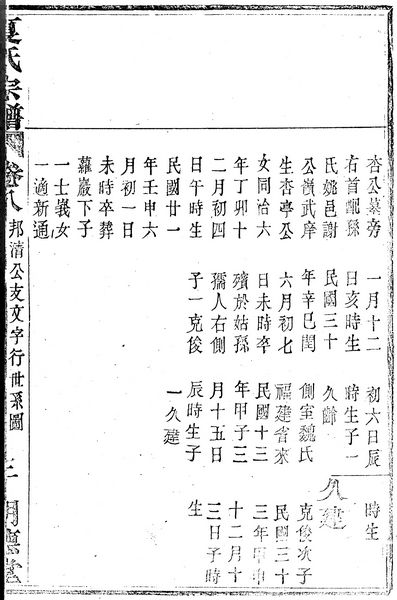 杏公墓旁
右首配孫
氏姚邑謝
公嶺武庠
生杏亭公
女同治六
年丁卯十
二月初四
日午時生
民國廿一
年壬申六
月初一日
未時卒葬
蘿巖下子
一士嶬女
一適新通
一月十二
日亥時生
民國三十
年辛巳閏
六月初七
日未時卒
殯於姑孫
孺人右側
子一克俊
初六日辰
時生子一
久齡
側室魏氏
福建省來
民國十三
年甲子三
月十五日
辰時生子
一久建
時生
久建
克俊次子
民國三十
三年甲申
十二月十
三日子時
生
夏氏宗譜
卷八
邦清公支文字行世系圖
三
明悳堂